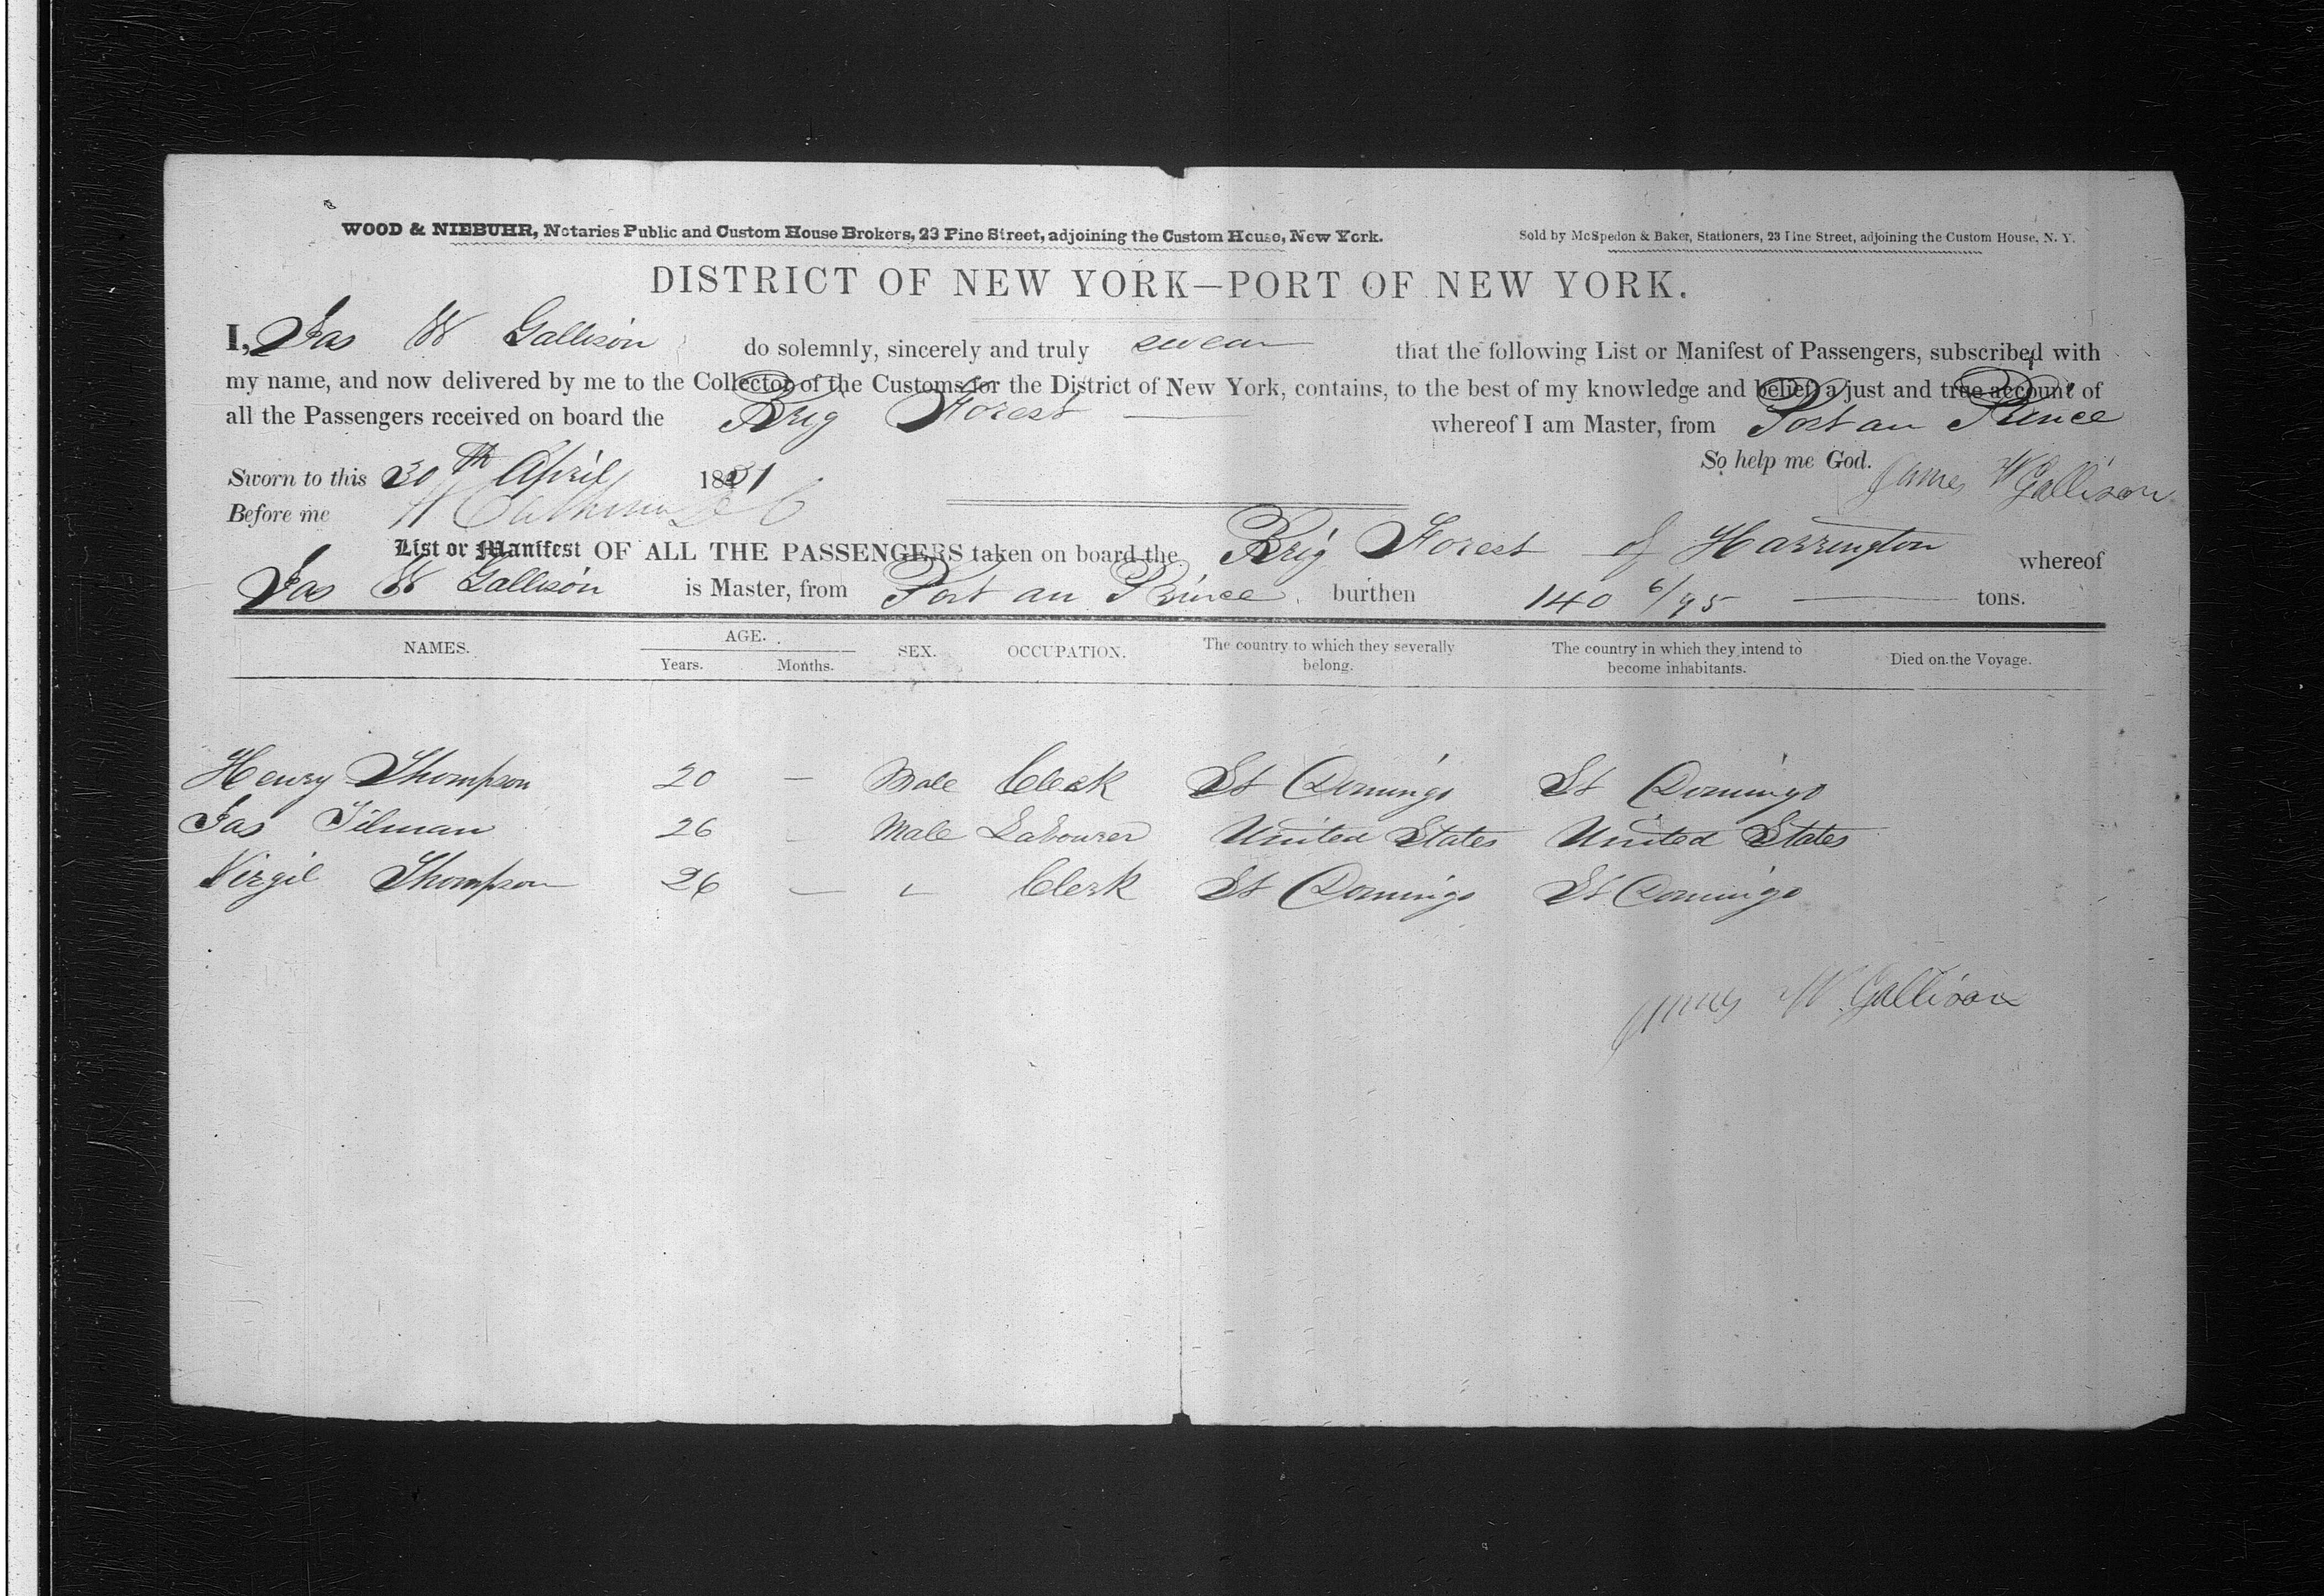 WOOD & NIEBUHR, Notaries Public and Custom House Brokers, 23 Pine Street, adjoining the Custom House, New York.
Sold by McSpedon & Baker, Stationers, 23 Pine Street, adjoining the Custom House, N. Y.
DISTRICT OF NEW YORK—PORT OF NEW YORK.
I, Jas W Gallison do solemnly, sincerely and truly swear that the following List or Manifest of Passengers, subscribed with
my name, and now delivered by me to the Collector of the Customs for the District of New York, contains, to the best of my knowledge and belief, a just and true account of
all the Passengers received on board the Brig Forest — whereof I am Master, from Port au Prince
So help me God. James W Gallison
Sworn to this 30th April 1851
Before me
List or Manifest OF ALL THE PASSENGERS taken on board the Brig Forest of Harrington whereof
Jas W Gallison is Master, from Port au Prince, burthen 140 6/95 — tons.
NAMES. AGE. SEX. OCCUPATION. The country to which they severally belong. The country in which they intend to become inhabitants. Died on the Voyage.
Years. Months.
Henry Thompson 20 — Male Clerk St Domingo St Domingo
Jas Tilman 26 - Male Labourer United States United States
Virgil Thompson 26 — " Clerk St Domingo St Domingo
James W Gallison